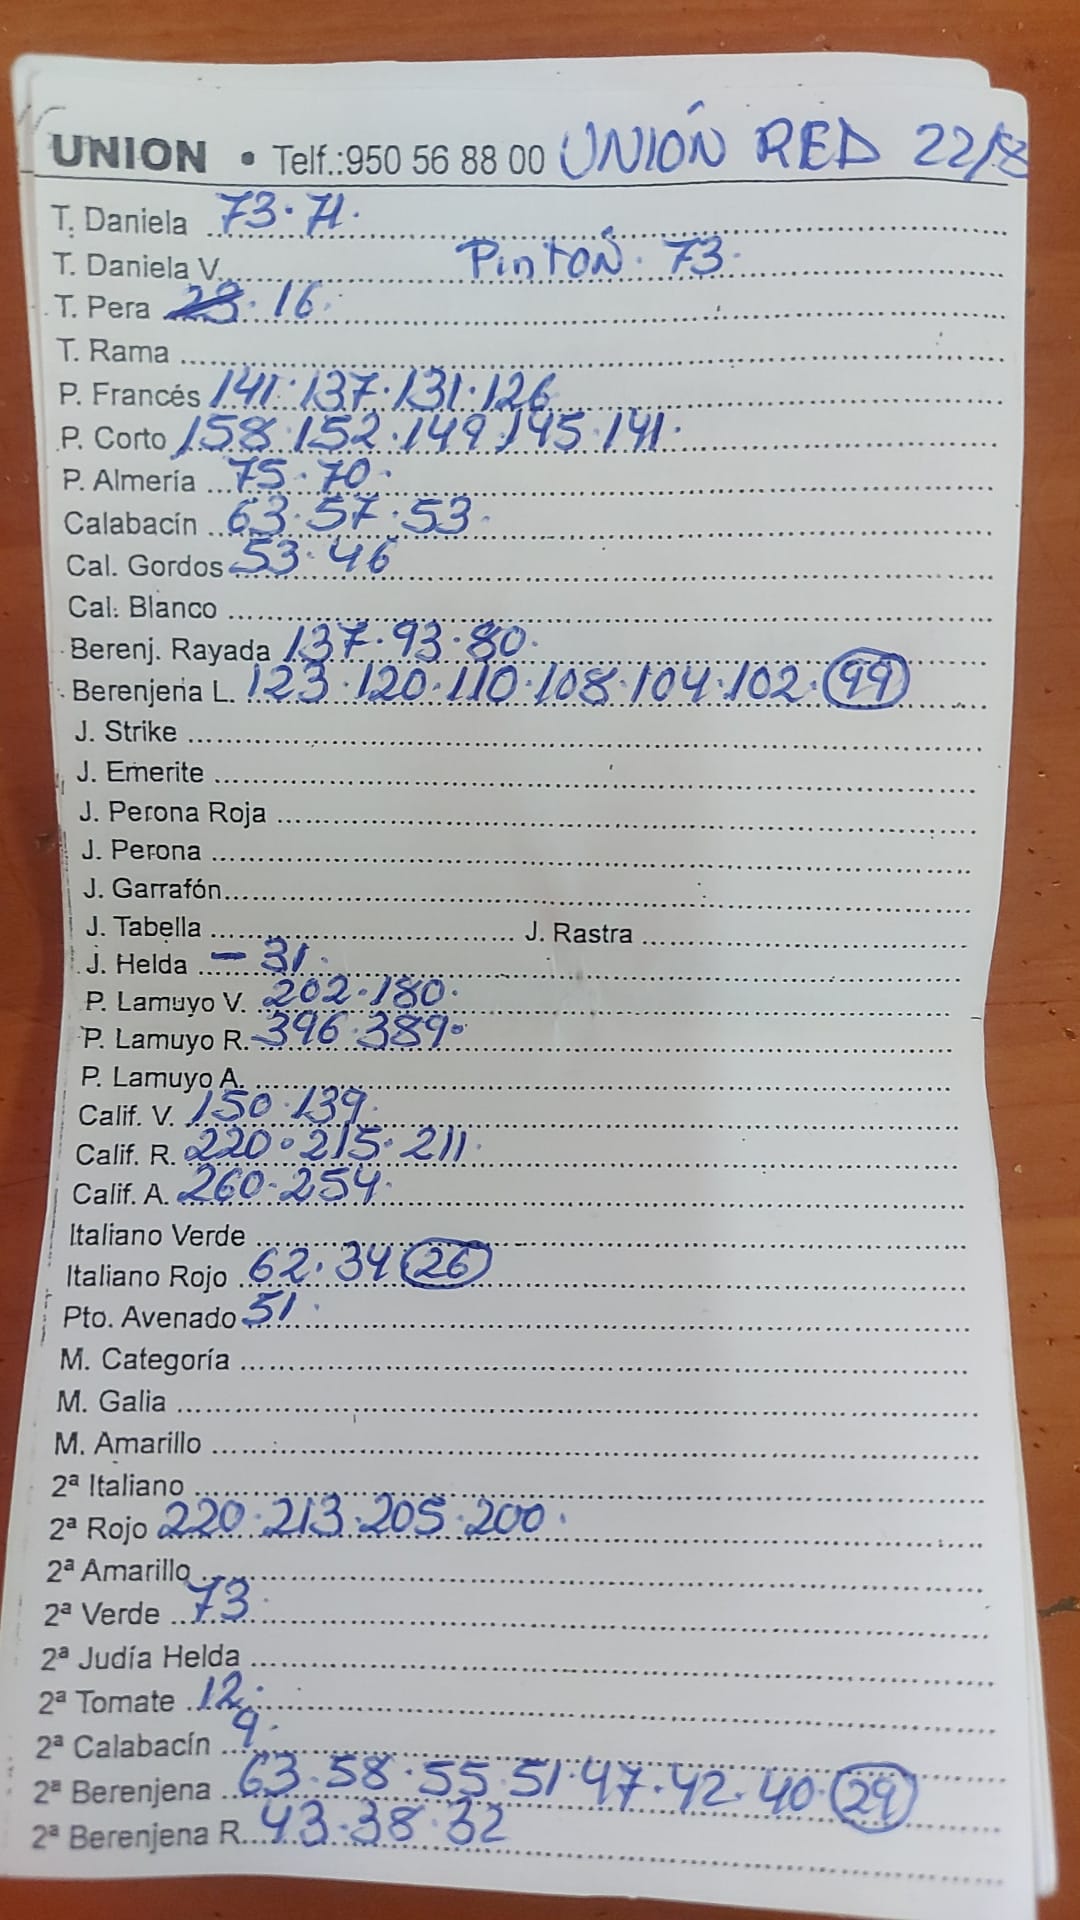 UNION • Telf.:950 56 88 00 UNIÓN RED 22/8
T. Daniela 73·71·
T. Daniela V. PintÓN· 73·
T. Pera 23· 16·
T. Rama
P. Francés 141·137·131·126
P. Corto 158·152·149·145·141·
P. Almería 75·70·
Calabacín 63·57·53·
Cal. Gordos 53·46
Cal. Blanco
Berenj. Rayada 137·93·80·
Berenjena L. 123·120·110·108·104·102·99
J. Strike
J. Emerite
J. Perona Roja
J. Perona
J. Garrafón
J. Tabella J. Rastra
J. Helda - 31·
P. Lamuyo V. 202·180·
P. Lamuyo R. 396·389·
P. Lamuyo A.
Calif. V. 150·139·
Calif. R. 220·215·211·
Calif. A. 260·254·
Italiano Verde
Italiano Rojo 62·34 26
Pto. Avenado 51·
M. Categoría
M. Galia
M. Amarillo
2ª Italiano
2ª Rojo 220·213·205·200·
2ª Amarillo
2ª Verde 73·
2ª Judía Helda
2ª Tomate 12·
2ª Calabacín 9·
2ª Berenjena 63·58·55·51·47·42·40·29
2ª Berenjena R. 43·38·32